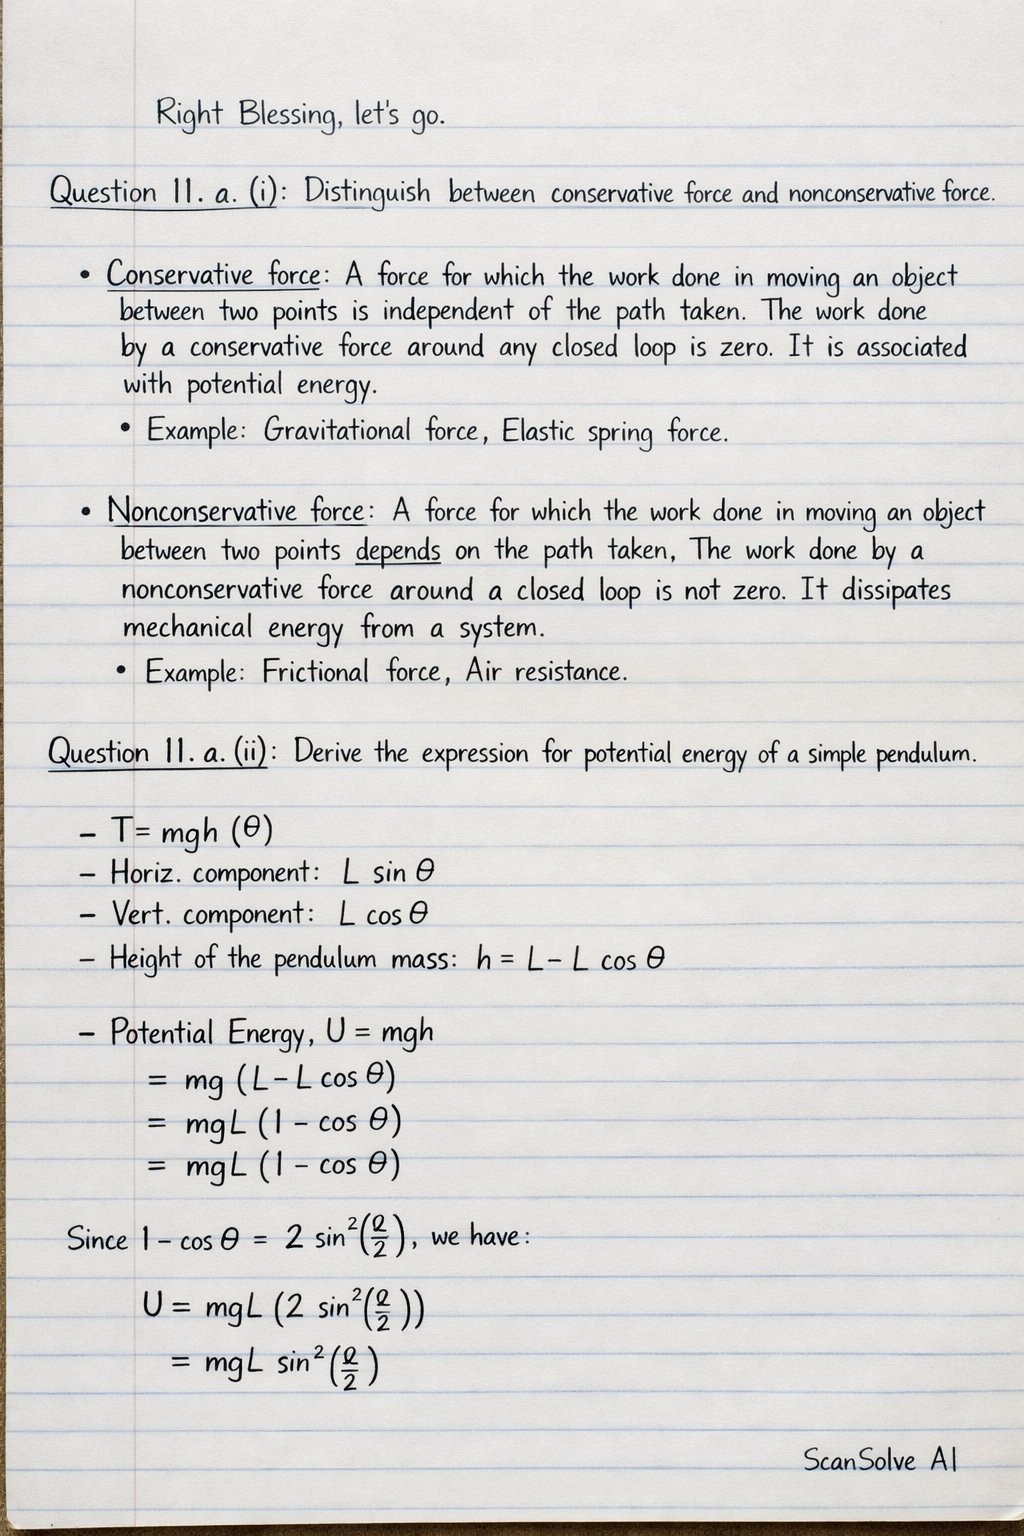 Right Blessing, let's go.
Question 11. a. (i): Distinguish between conservative force and nonconservative force.
• Conservative force: A force for which the work done in moving an object
between two points is independent of the path taken. The work done
by a conservative force around any closed loop is zero. It is associated
with potential energy.
• Example: Gravitational force, Elastic spring force.
• Nonconservative force: A force for which the work done in moving an object
between two points depends on the path taken, The work done by a
nonconservative force around a closed loop is not zero. It dissipates
mechanical energy from a system.
• Example: Frictional force, Air resistance.
Question 11. a. (ii): Derive the expression for potential energy of a simple pendulum.
– T = mgh (θ)
– Horiz. component: L sin θ
– Vert. component: L cos θ
– Height of the pendulum mass: h = L – L cos θ
– Potential Energy, U = mgh
= mg (L – L cos θ)
= mgL (1 – cos θ)
= mgL (1 – cos θ)
Since 1 – cos θ = 2 sin²(θ/2), we have:
U = mgL (2 sin²(θ/2))
= mgL sin²(θ/2)
ScanSolve AI